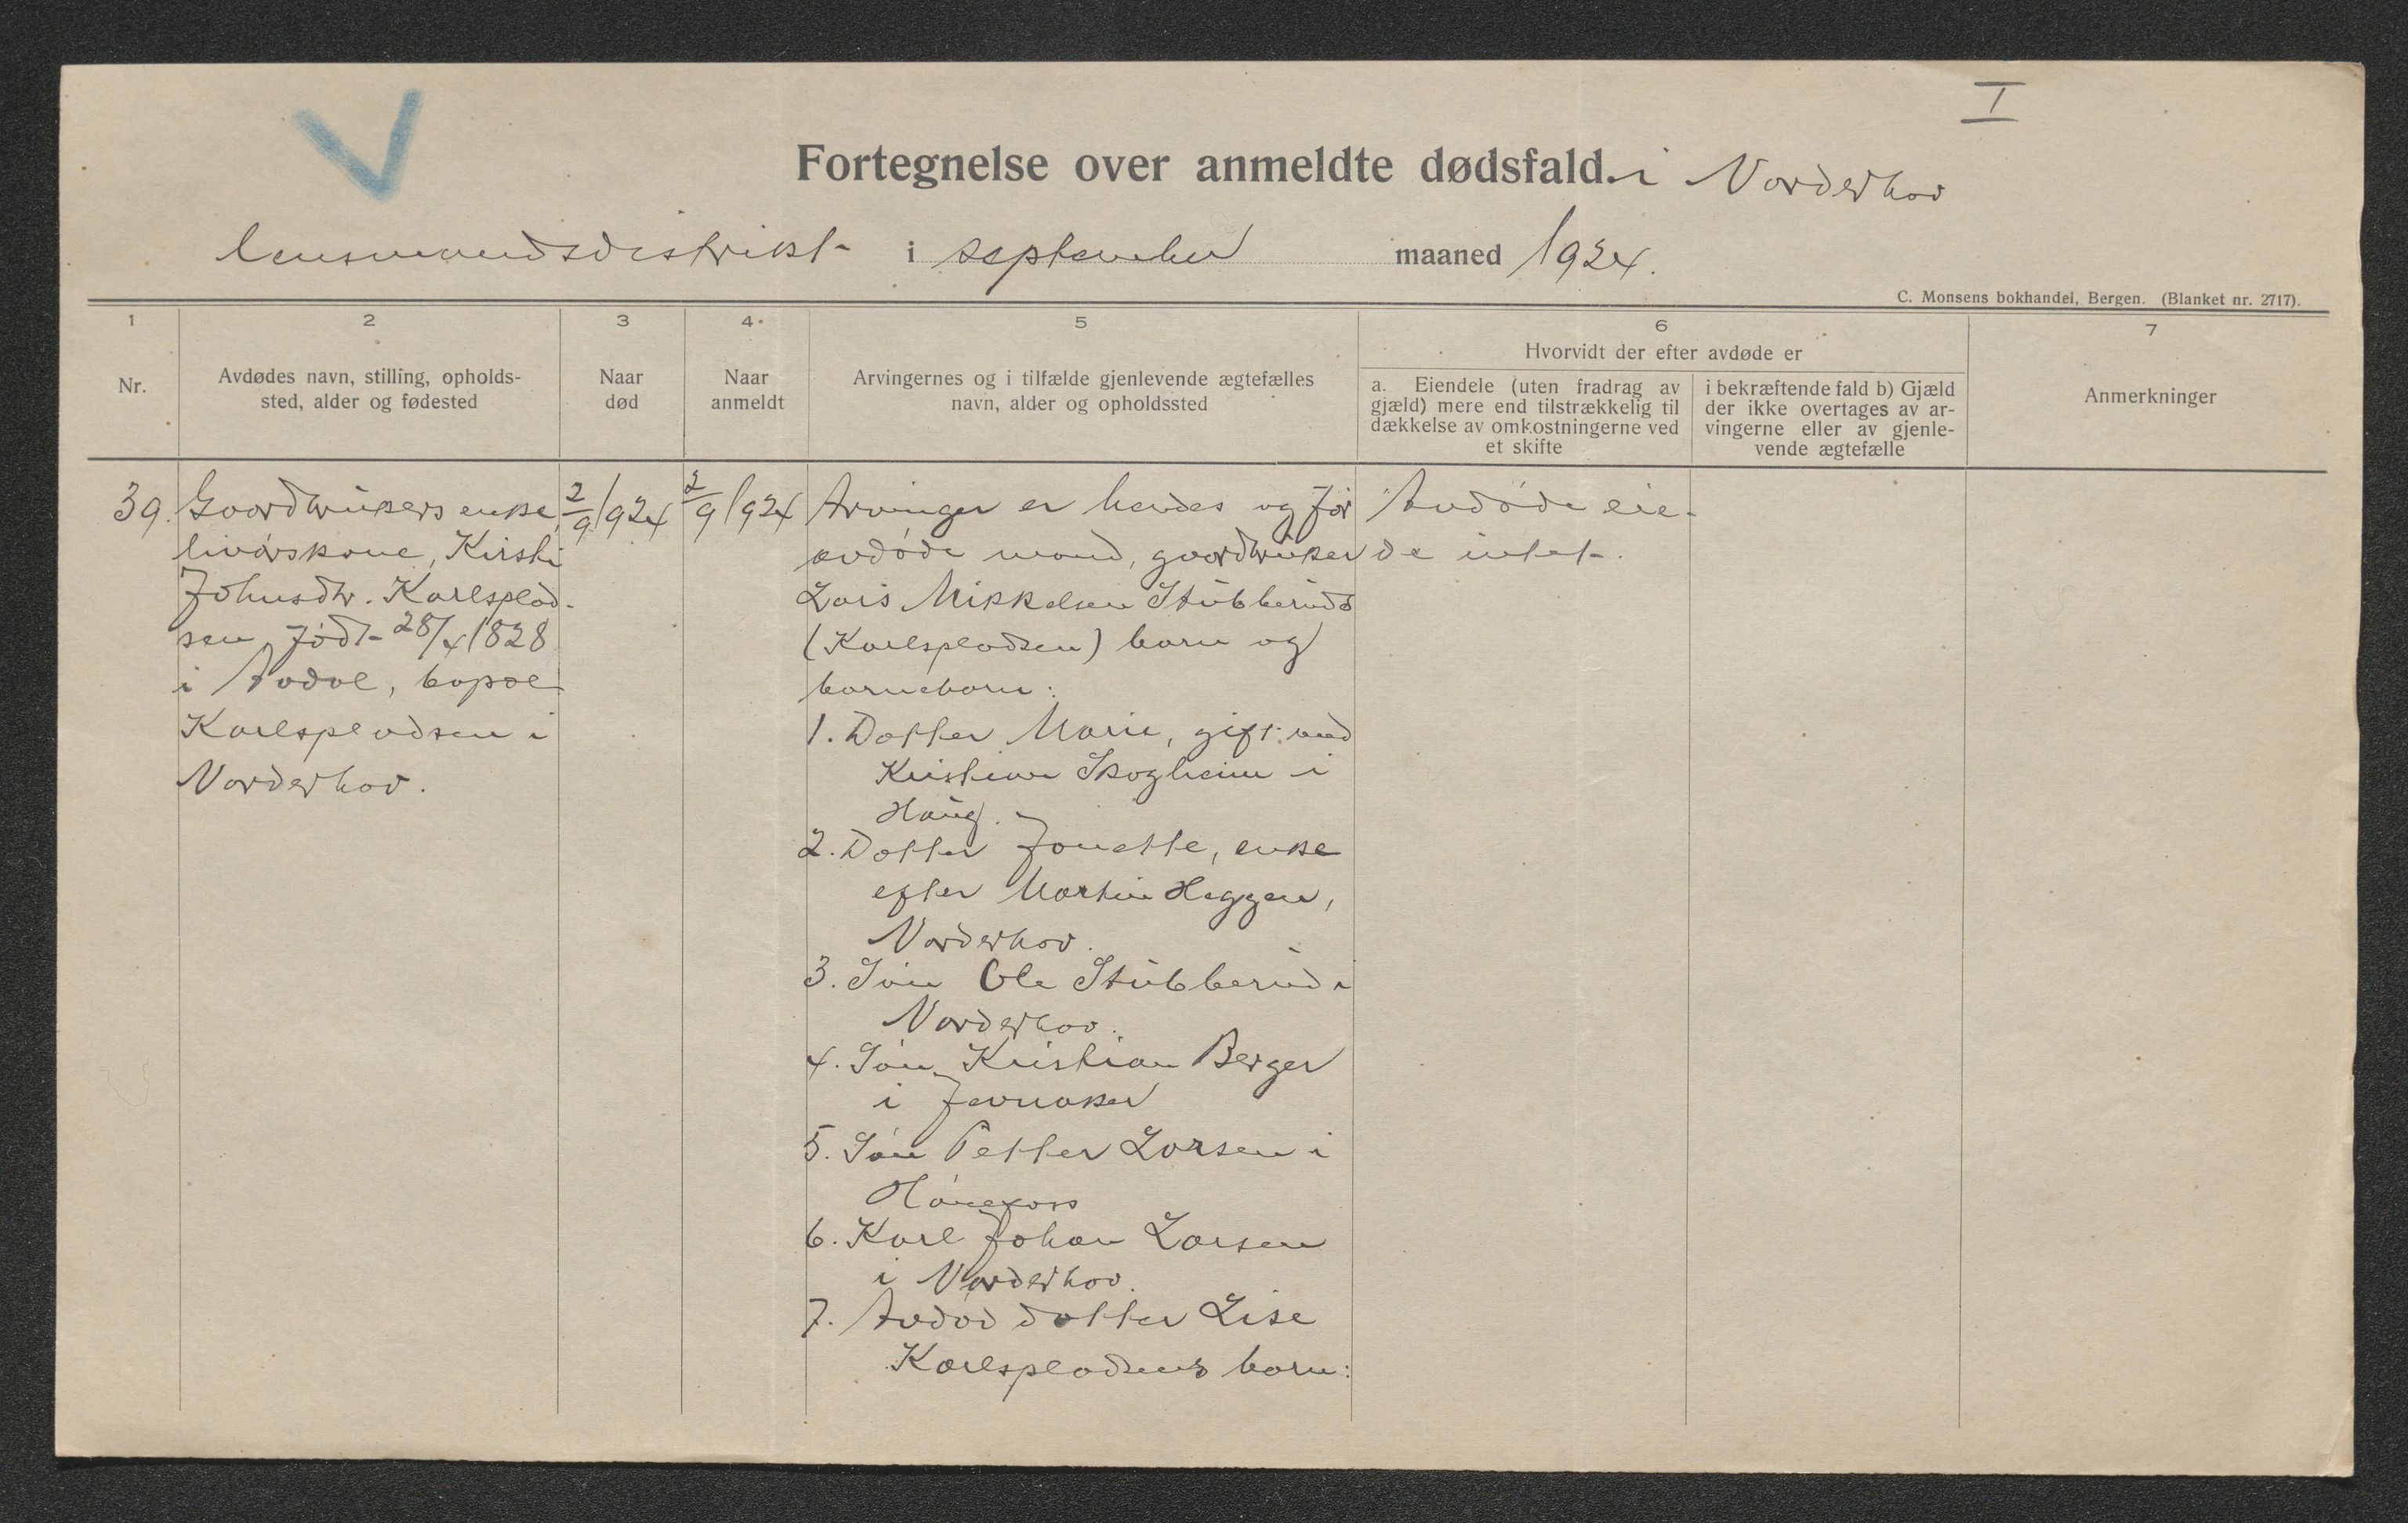 I
Fortegnelse over anmeldte dødsfald. i Norderhov
lensmandsdistrikt i september maaned 1924.
C. Monsens bokhandel, Bergen. (Blanket nr. 2717).
1 2 3 4 5 6 7
Nr.
Avdødes navn, stilling, opholds-
sted, alder og fødested
Naar
død
Naar
anmeldt
Arvingernes og i tilfælde gjenlevende ægtefælles
navn, alder og opholdssted
Hvorvidt der efter avdøde er
a. Eiendele (uten fradrag av
gjæld) mere end tilstrækkelig til
dækkelse av omkostningerne ved
et skifte
i bekræftende fald b) Gjæld
der ikke overtages av ar-
vingerne eller av gjenle-
vende ægtefælle
Anmerkninger
39.
Gaardbrukers enke,
livørskone, Kirsti
Johnsdtr. Karlsplad-
sen, født 28/4 1828
i Aadal, bopæl
Karlspladsen i
Norderhov.
2/9 1924
2/9 1924
Arvinger er hendes og før
avdøde mand, gaardbruker
Lars Mikkelsen Stubberuds
(Karlspladsen) barn og
barnebarn:
1. Datter Marie, gift med
Kristian Skogheim i
Haug.
2. Datter Jonette, enke
efter Martin Heggen,
Norderhov.
3. Søn Ole Stubberud i
Norderhov.
4. Søn Kristian Berger
i Jevnaker
5. Søn Petter Larsen i
Hønefoss
6. Karl Johan Larsen
i Norderhov.
7. Avdød datter Lise
Karlspladsens barn:
Avdøde eie-
de intet.